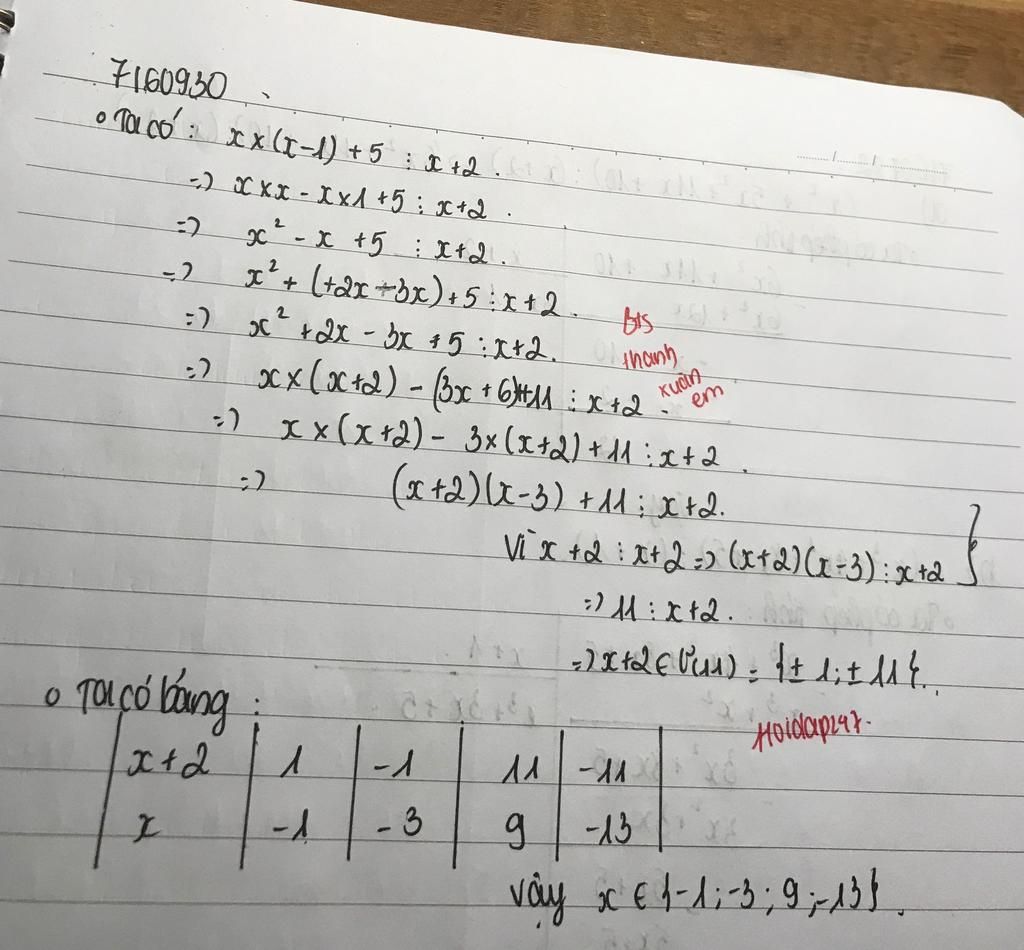 7160930
o Ta có: x × (x-1) + 5 ⋮ x+2.
=> x × x - x × 1 + 5 ⋮ x+2.
=> x² - x + 5 ⋮ x+2.
=> x² + (+2x - 3x) + 5 ⋮ x+2.
=> x² + 2x - 3x + 5 ⋮ x+2.
=> x × (x+2) - (3x+6) + 11 ⋮ x+2.
=> x × (x+2) - 3 × (x+2) + 11 ⋮ x+2.
=> (x+2)(x-3) + 11 ⋮ x+2.
Vì x+2 ⋮ x+2 => (x+2)(x-3) ⋮ x+2 }
=> 11 ⋮ x+2.
=> x+2 ∈ Ư(11) = {±1; ±11}.
BTS
thanh
xuân
em
o Ta có bảng:
Hoidap247.
x+2 | 1 | -1 | 11 | -11
x | -1 | -3 | 9 | -13
Vậy x ∈ {-1; -3; 9; -13}.